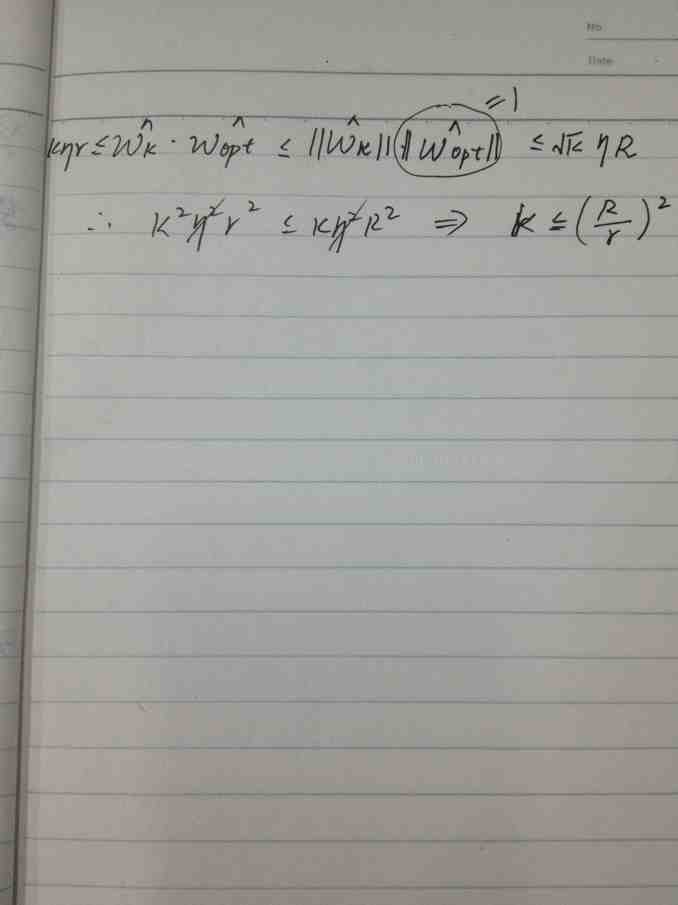 No
Date
=1
kηr ≤ ŵk · ŵopt ≤ ||ŵk|| ||ŵopt|| ≤ √k ηR
∴ k²η²r² ≤ kη²R² ⇒ k ≤ (R/r)²